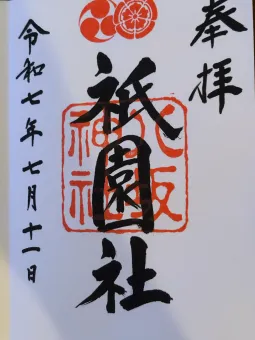 奉拝
八坂
神社
祇園社
令和七年七月十一日